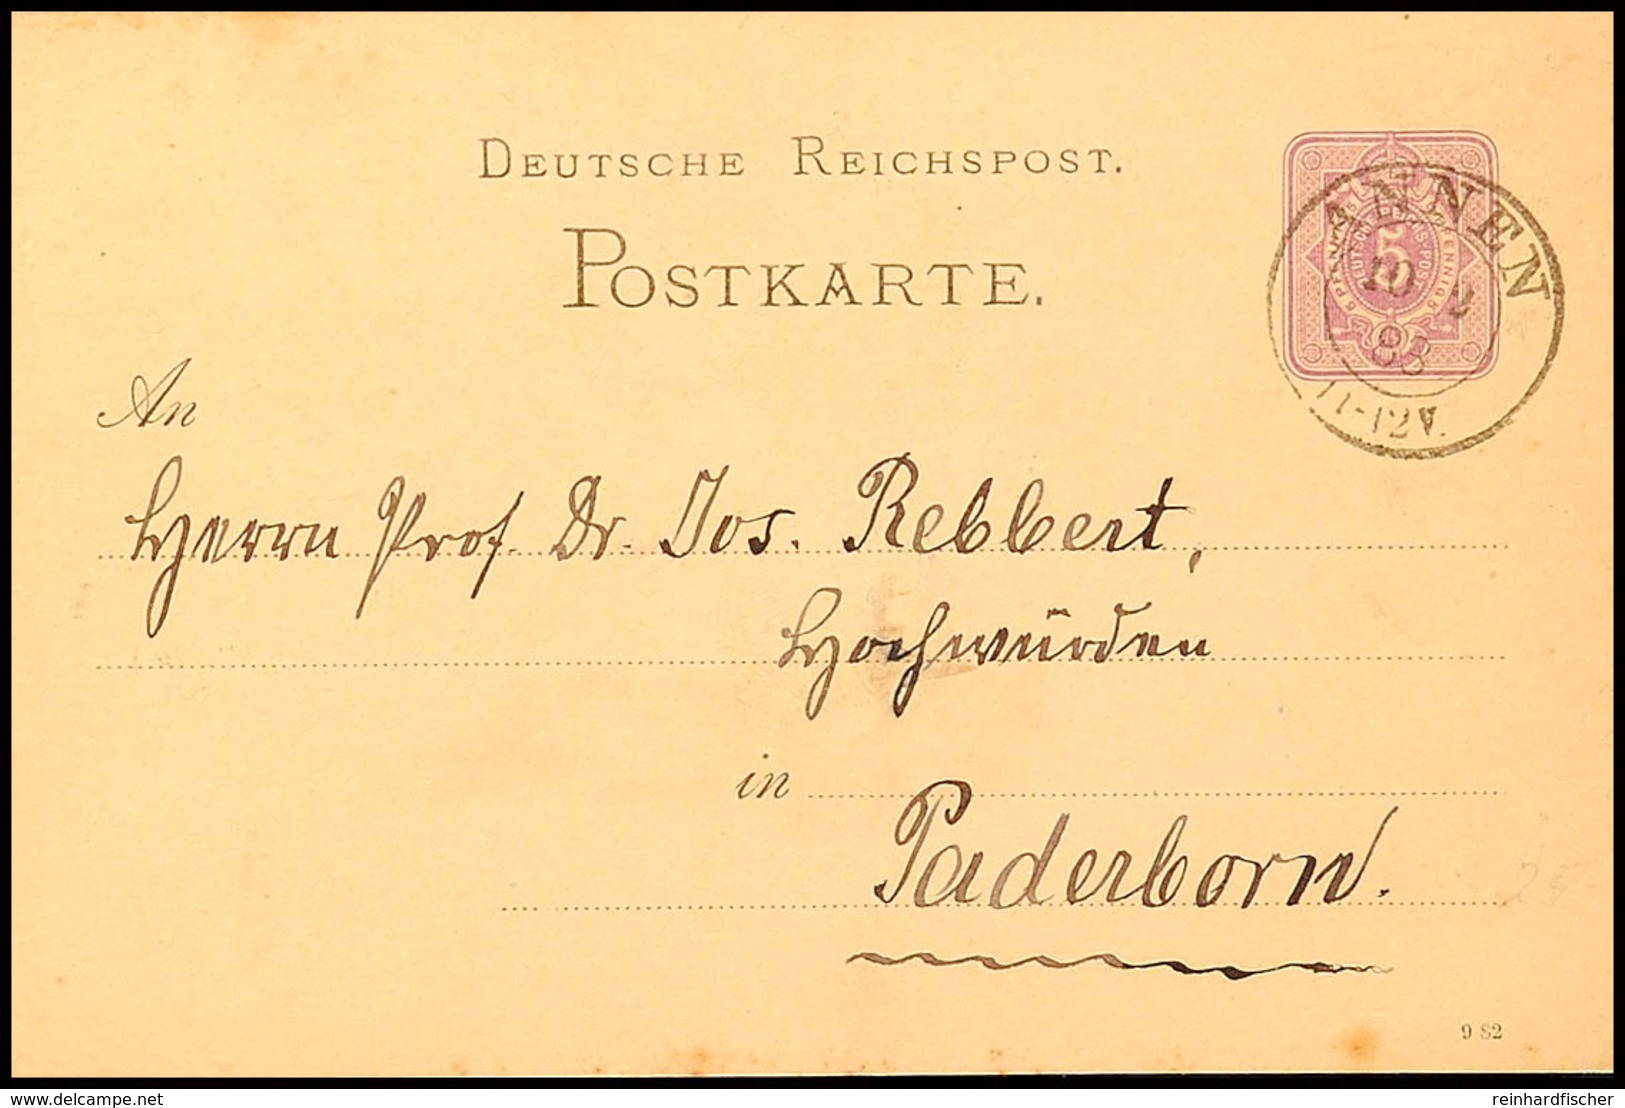 DEUTSCHE REICHSPOST.
POSTKARTE.
5
ANNEN
10 2
83
11-12V.
An
Herrn Prof. Dr. Jos. Rebbert,
Hochwürden
in
Paderborn.
9 82
www.delcampe.net
reinhardfischer